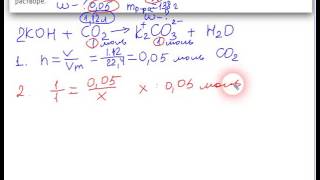 растворе.
0,05
1,12л
2KOH + CO₂ → K₂CO₃ + H₂O
1 моль 1 моль
1. n = V/Vm = 1.12/22,4 = 0,05 моль CO₂
2. 1/1 = 0,05/x x = 0,05 моль